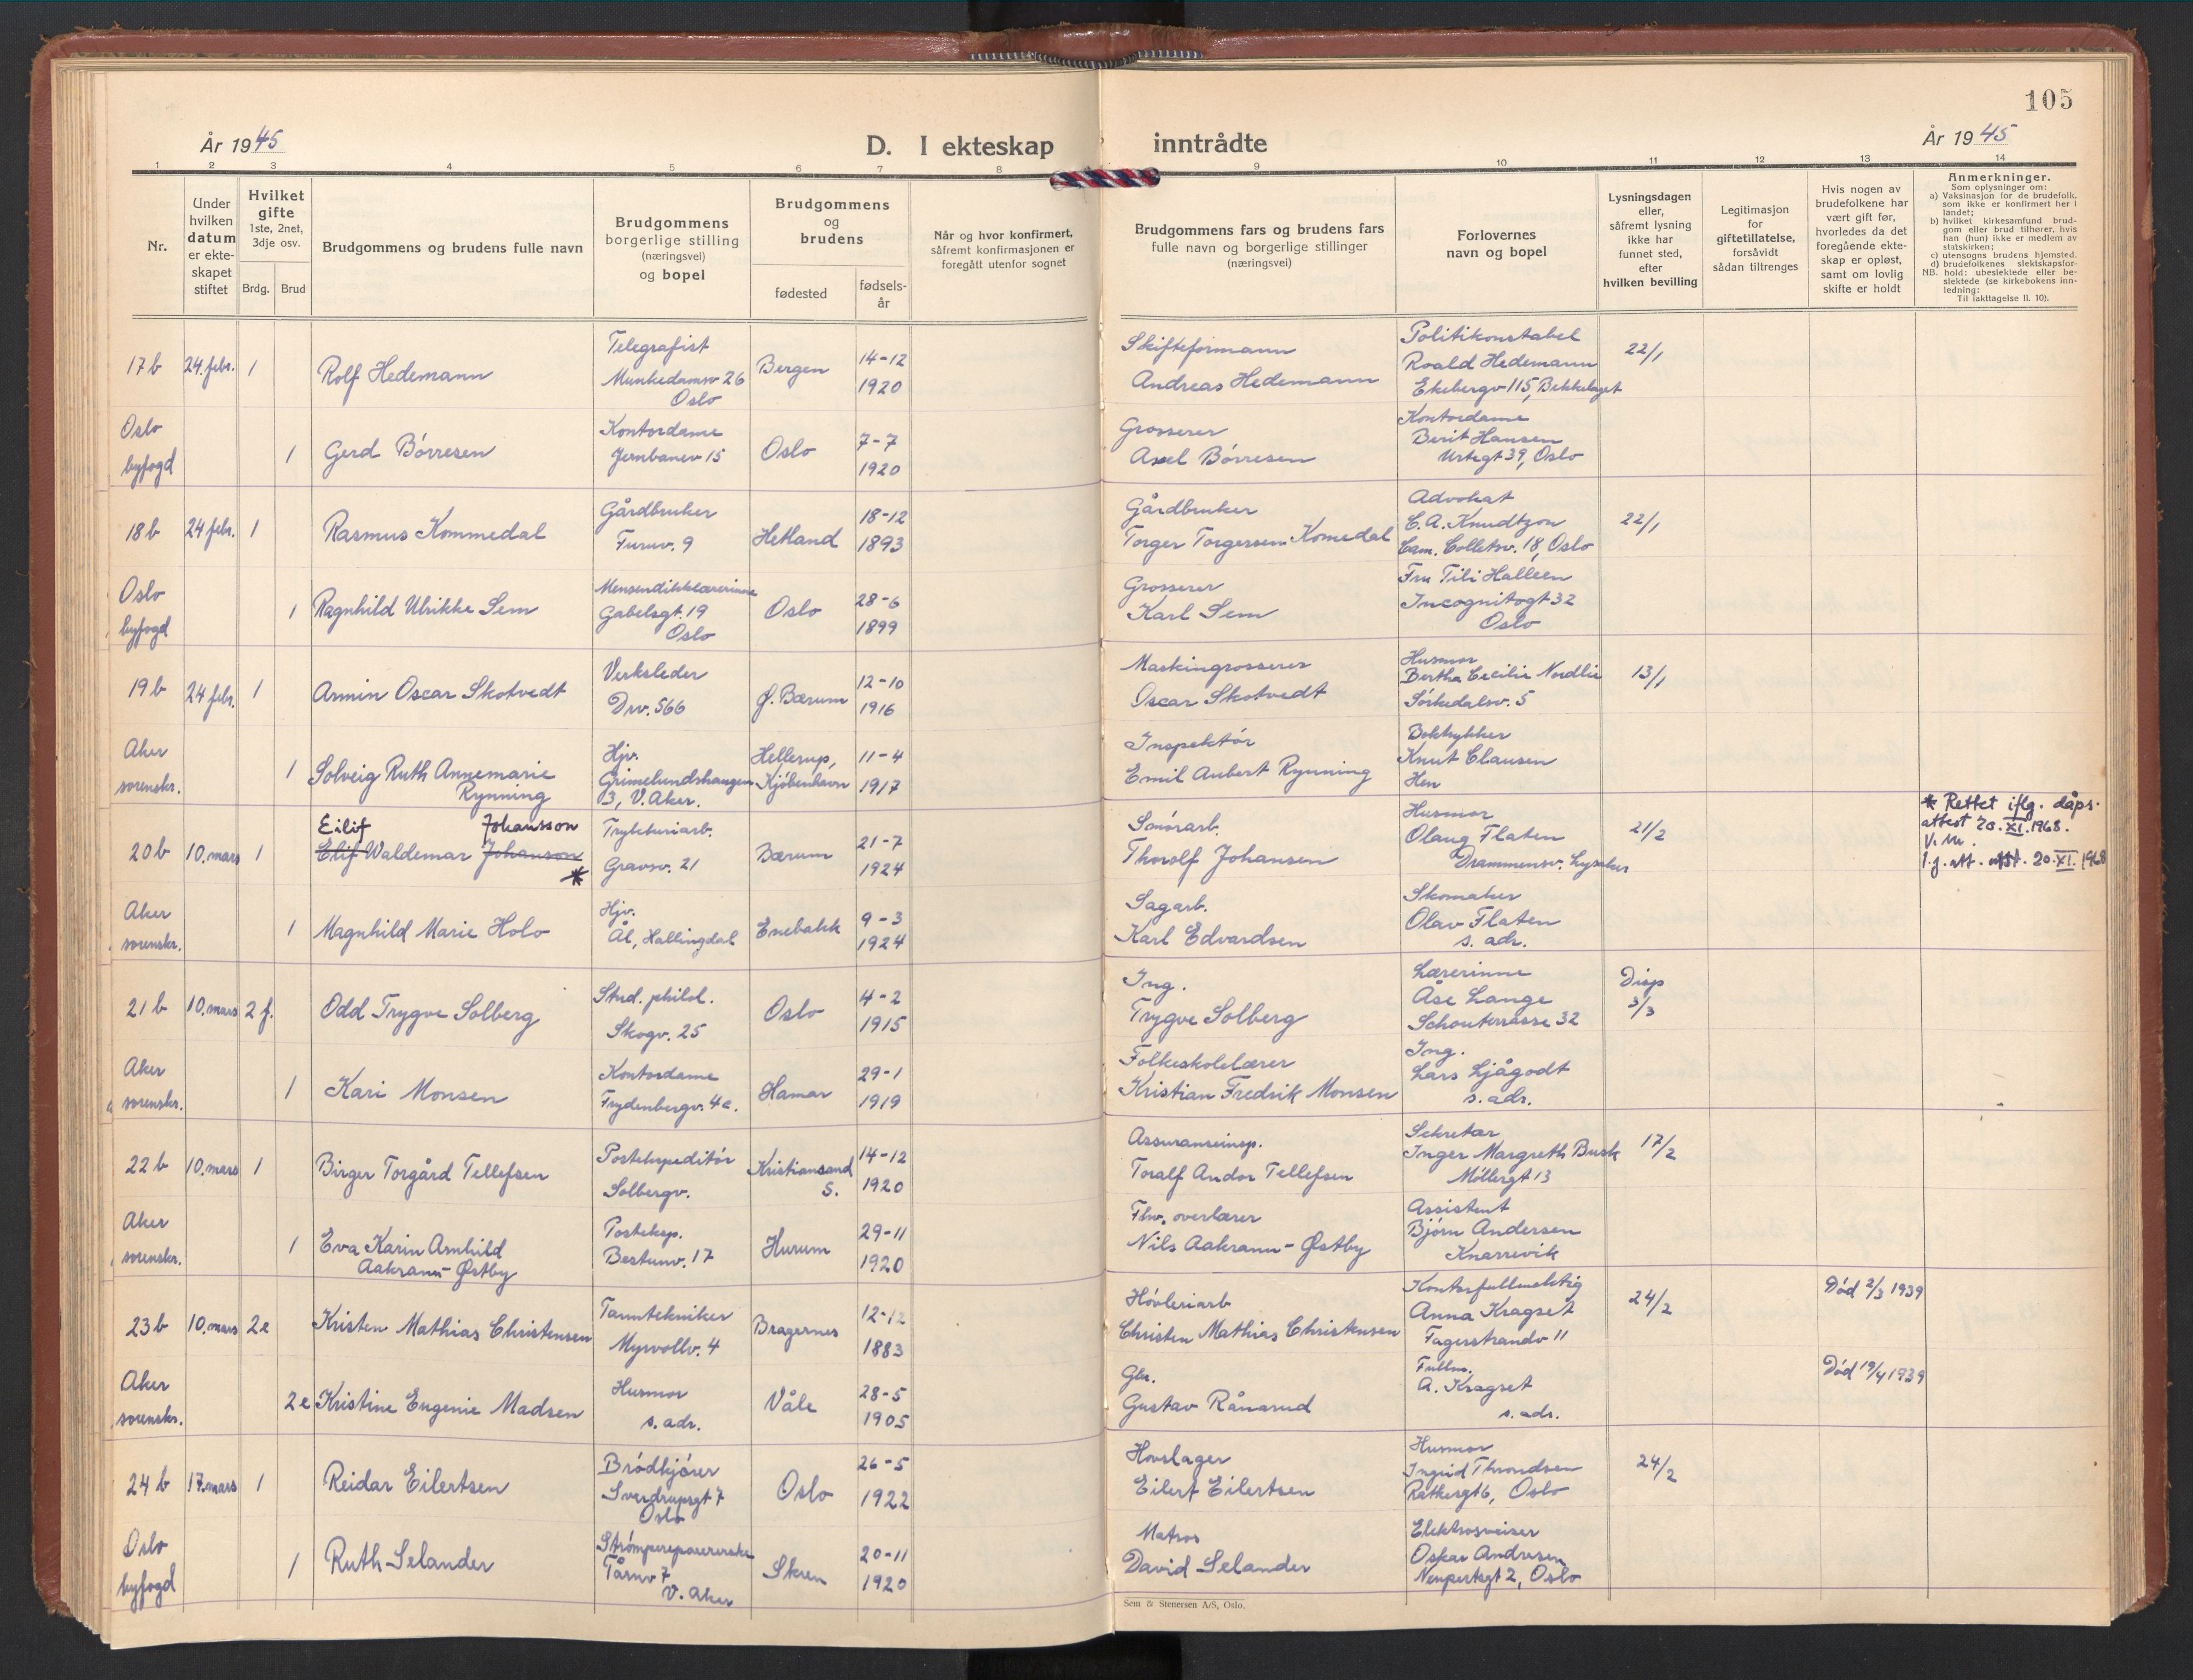 105
År 1945
D. I ekteskap inntrådte
År 1945
1 2 3 4 5 6 7 8 9 10 11 12 13 14
Nr.
Under
hvilken
datum
er ekte-
skapet
stiftet
Hvilket
gifte
1ste, 2net,
3dje osv.
Brdg. Brud
Brudgommens og brudens fulle navn
Brudgommens
borgerlige stilling
(næringsvei)
og bopel
Brudgommens
og
brudens
fødested
fødsels-
år
Når og hvor konfirmert,
såfremt konfirmasjonen er
foregått utenfor sognet
Brudgommens fars og brudens fars
fulle navn og borgerlige stillinger
(næringsvei)
Forlovernes
navn og bopel
Lysningsdagen
eller,
såfremt lysning
ikke har
funnet sted,
efter
hvilken bevilling
Legitimasjon
for
giftetillatelse,
forsåvidt
sådan tiltrenges
Hvis nogen av
brudefolkene har
vært gift før,
hvorledes da det
foregående ekte-
skap er opløst,
samt om lovlig
skifte er holdt
Anmerkninger.
Som oplysninger om:
a) Vaksinasjon for de brudefolk,
som ikke er konfirmert her i
landet;
b) hvilket kirkesamfund brud-
gom eller brud tilhører, hvis
han (hun) ikke er medlem av
statskirken;
c) utensogns brudens hjemsted.
d) brudefolkenes slektskapsfor-
NB. hold: ubeslektede eller be-
slektede (se kirkebokens inn-
ledning:
Til iakttagelse II. 10).
17b 24. febr. 1
Rolf Hedemann
Telegrafist
Munkedamsv 26
Oslo
Bergen
14-12
1920
Skifteformann
Andreas Hedemann
Politikonstabel
Roald Hedemann
Ekebergv 115, Bekkelaget
22/1
Oslo
byfogd
1
Gerd Börresen
Kontordame
Jernbanev 15
Oslo
7-7
1920
Grosserer
Axel Börresen
Kontordame
Berit Hansen
Urtegt 39, Oslo
18b 24 febr. 1
Rasmus Kommedal
Gårdbruker
Furuv. 9
Hetland
18-12
1893
Gårdbruker
Torger Torgersen Komedal
Advokat
C. A. Knudtzon
Cam. Colletsv. 18, Oslo
22/1
Oslo
byfogd
1
Ragnhild Ulrikke Sem
Mensendikklærerinne
Gabelsgt. 19
Oslo
Oslo
28-6
1899
Grosserer
Karl Sem
Fru Tili Halleen
Incognitogt 32
Oslo
19b 24 febr. 1
Armin Oscar Skotvedt
Verksleder
Drv. 566
Ø. Bærum
12-10
1916
Maskingrosserer
Oscar Skotvedt
Husmor
Bertha Cecilie Nordlie
Sörkedalsv. 5
13/1
Aker
sorenskr.
1
Solveig Ruth Annemarie
Rynning
Hjv.
Grimelundshaugen
3, V. Aker.
Hellerup,
Kjöbenhavn
11-4
1917
Inspektör
Emil Aubert Rynning
Boktrykker
Knut Clausen
Hen
20b 10. mars 1
Eilif Johansson
Elif Waldemar Johanson
*
Trykkeriarb.
Gravsv. 21
Bærum
21-7
1924
Smörarb.
Thorolf Johansen
Husmor
Olaug Flaten
Drammensv. Lysaker
21/2
* Rettet iflg. dåps-
attest 20. XI. 1968.
20. XI. 1968
Aker
sorenskr.
1
Magnhild Marie Holo
Hjv.
Ål, Hallingdal
Enebakk
9-3
1924
Sagarb.
Karl Edvardsen
Skomaker
Olav Flaten
s. adr.
21b 10. mars 2 f.
Odd Trygve Solberg
Stud. philol.
Skogv. 25
Oslo
4-2
1915
Ing.
Trygve Solberg
Lærerinne
Åse Lange
Schouterrasse 32
Disp
3/3
Aker
sorenskr.
1
Kari Monsen
Kontordame
Frydenbergv. 4c.
Hamar
29-1
1919
Folkeskolelærer
Kristian Fredrik Monsen
Ing.
Lars Ljågodt
s. adr.
22b 10. mars 1
Birger Torgård Tellefsen
Postekspeditör
Solbergv.
Kristiansand
S.
14-12
1920
Assuranseinsp.
Toralf Andor Tellefsen
Sekretær
Inger Margreth Busk
Möllergt 13
17/2
Aker
sorenskr.
1
Eva Karin Arnhild
Aakrann-Østby
Posteksp.
Bestumv. 17
Hurum
29-11
1920
Fhv. overlærer
Nils Aakrann-Østby
Assistent
Björn Andersen
Knarrevik
23b 10. mars 2e
Kristen Mathias Christensen
Tanntekniker
Myrvollv. 4
Bragernes
12-12
1883
Hövleriarb
Christen Mathias Christensen
Kontorfullmektig
Anna Kragset
Fagerstrandv 11
24/2
Död 2/3 1939
Aker
sorenskr.
2e
Kristine Eugenie Madsen
Husmor
s. adr.
Våle
28-5
1905
Gbr.
Gustav Rånerud
Fullm.
A. Kragset
s. adr.
Död 19/4 1939
24b 17. mars 1
Reidar Eilertsen
Brödkjörer
Sverdrupsgt 7
Oslo
Oslo
26-5
1922
Hovslager
Eilert Eilertsen
Husmor
Ingrid Throndsen
Ratkesgt 6, Oslo
24/2
Oslo
byfogd
1
Ruth Selander
Strömpereparererske
Tårnv 7
V. Aker
Skien
20-11
1920
Matros
David Selander
Elektrosveiser
Oskar Andresen
Neupertsgt 2, Oslo
Sem & Stenersen A/S, Oslo.